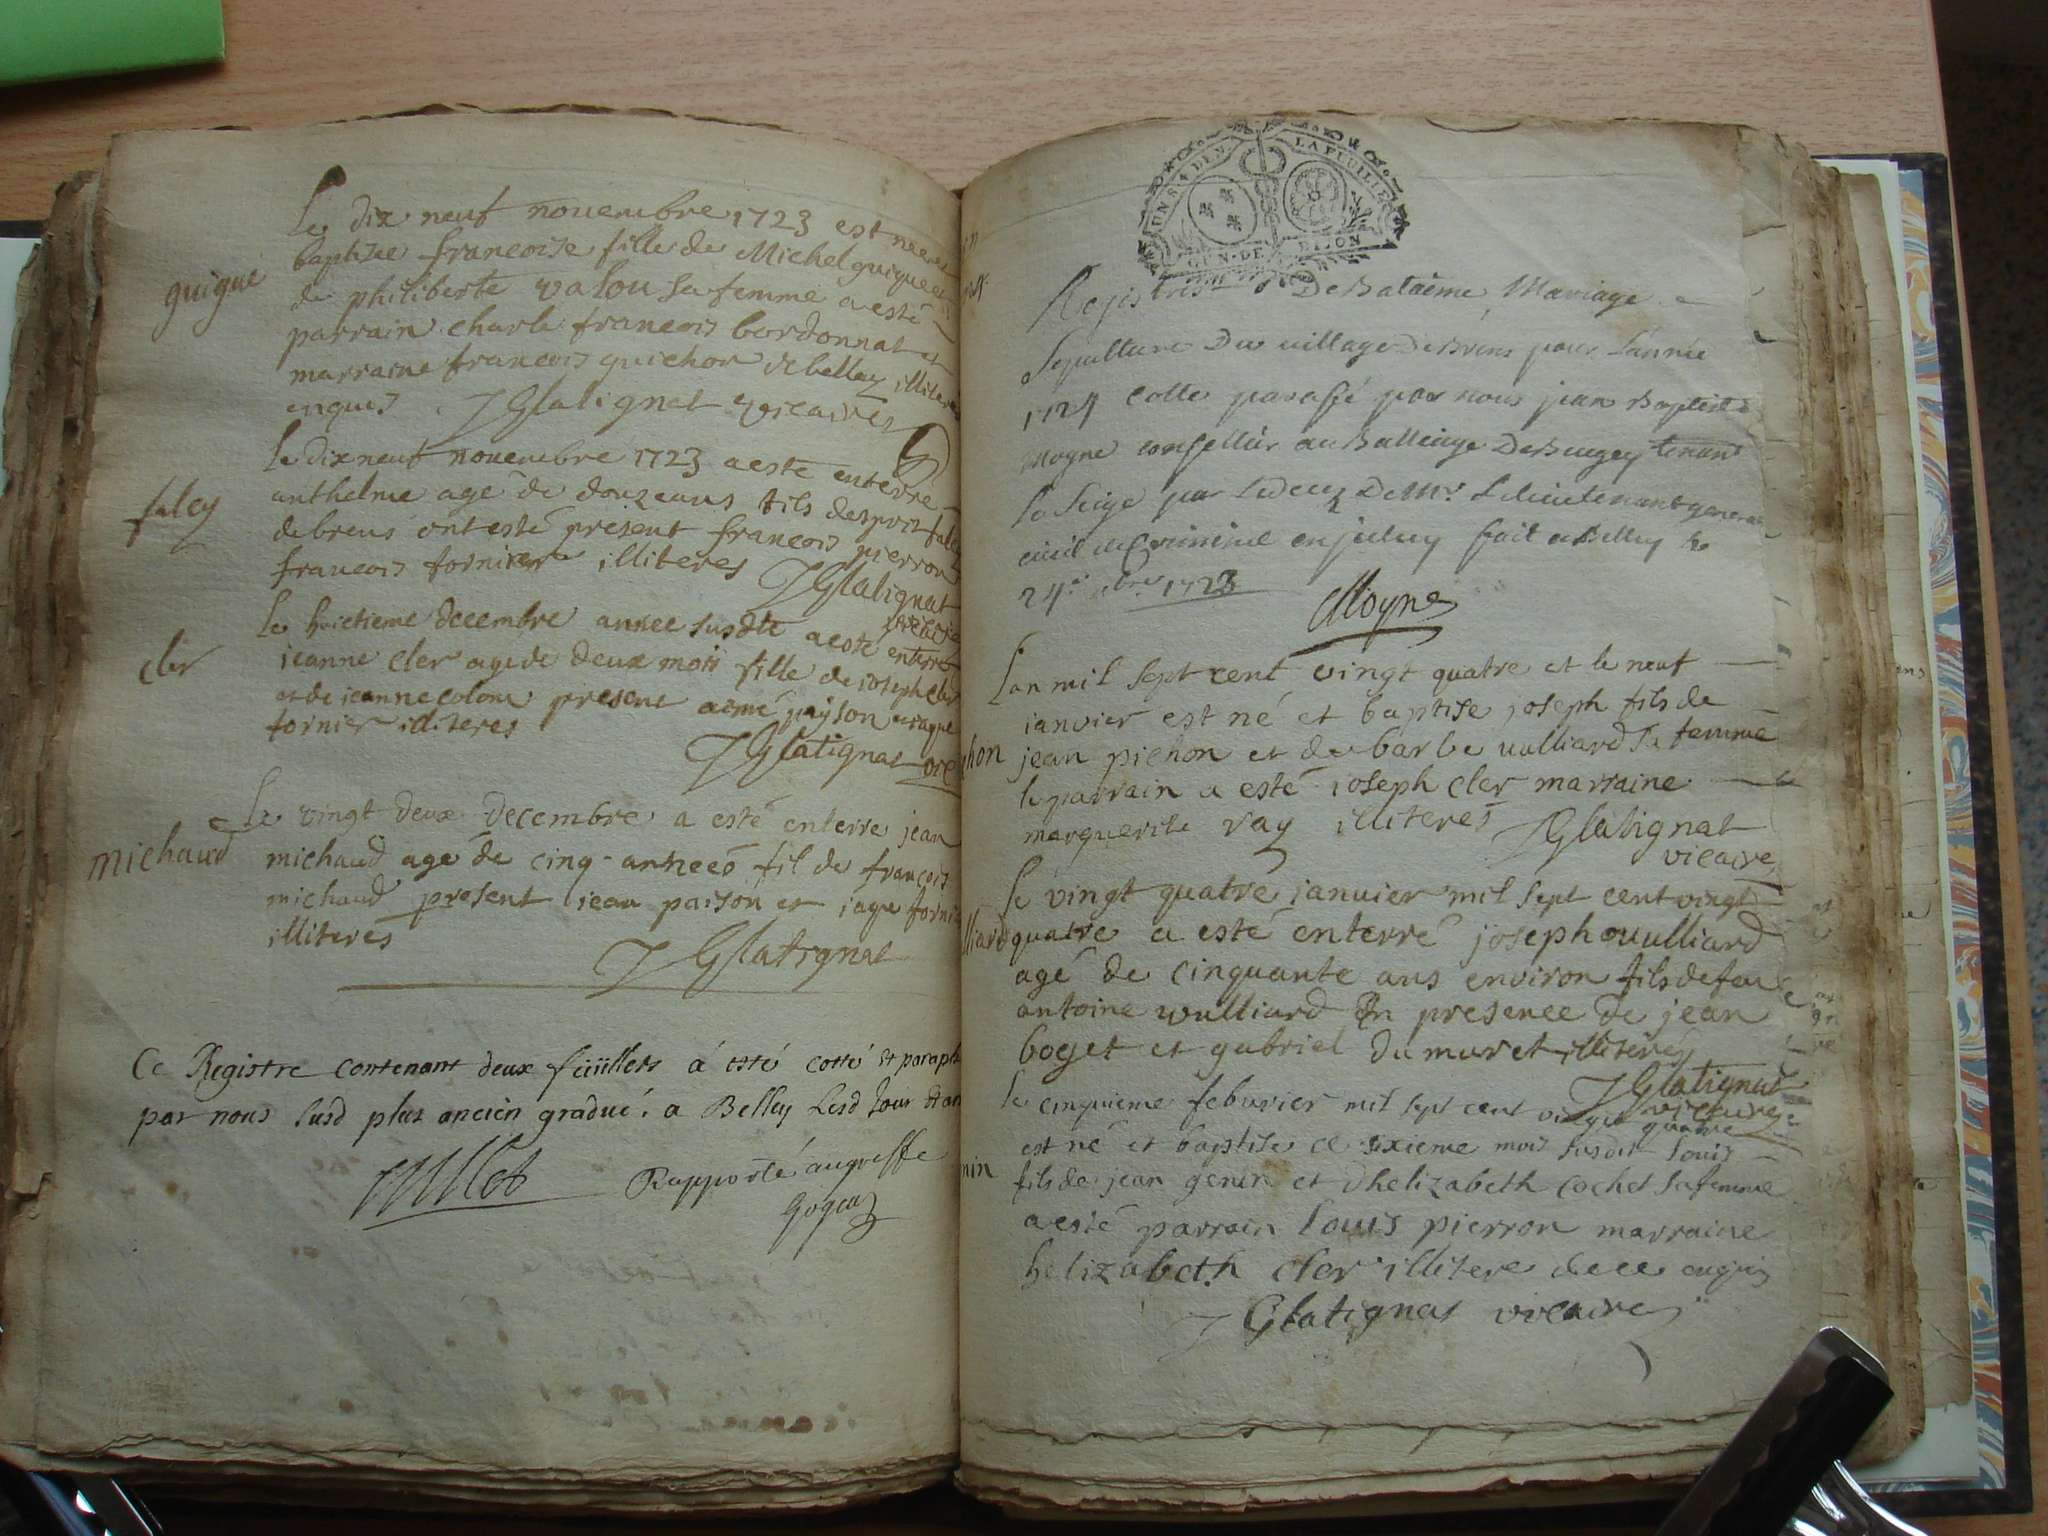 Le dix neuf nouembre 1723 est nee et
baptisee francoise fille de Michel guigue et
de philiberte valou sa femme a esté
parrain charle francois bordonnat et
marraine francois guichon de belley illiteres
enquis J Glatignat vicaire
guigue
Le dix neuf nouembre 1723 a esté enterré
anthelme agé de douze ans fils despvis faley
de brens ont esté présent francois pierron
francois fornier illiteres J Glatignat
vicaire
faley
Le huictieme decembre annee susdte a esté enterré
jeanne cler agé de deux mois fille de ioseph cler
et de ieanne colom present aemé payson et iaque
fornier illiteres
J Glatignat vic
cler
Le vingt deux decembre a esté enterre jean
michaud agé de cinq années fil de francois
michaud present iean paison et iaque fornier
illiteres
J Glatignat
michaud
Ce Registre contenant deux feüillets á esté cotté et paraphé
par nous susd plus ancien gradué. a Belley Lesd Jour et an
Rapporté au greffe
UN S 4 DEN LA FEUILLE
GEN DE DIJON
Registres De Bataême Mariage
Sepulture Du uillage De Brens pour Lannée
1724 Cotté paraffé par nous jean Baptiste
Moyne conseller au Balliage De Bugey tenant
Le Seige par Ledecez De Mr Le lieutenant general
ciuil et Criminel fait a Belley le
24e xbre 1723
Moyne
Lan mil sept cent vingt quatre et le neuf
ianvier est né et baptise joseph fils de
jean pichon et de barbe uulliard sa femme
le parrain a esté ioseph cler marraine
marguerite ray illiteres J Glatignat
vicaire
chon
Le vingt quatre ianuier mil sept cent vingt
quatre a esté enterré joseph uulliard
agé de cinquante ans environ fils de feu
antoine vulliard En presence de jean
boget et gabriel du muret illiteres
J Glatignat
vicaire
lliard
Le cinquieme feburier mil sept cent vingt
quatre
est né et baptise le sixieme mois susdit louis
fils de jean genin et dhelizabeth cochet sa femme
a esté parrain louis pierron marraine
helizabeth cler illitere de ce enquis
J Glatignat vicaire
nin